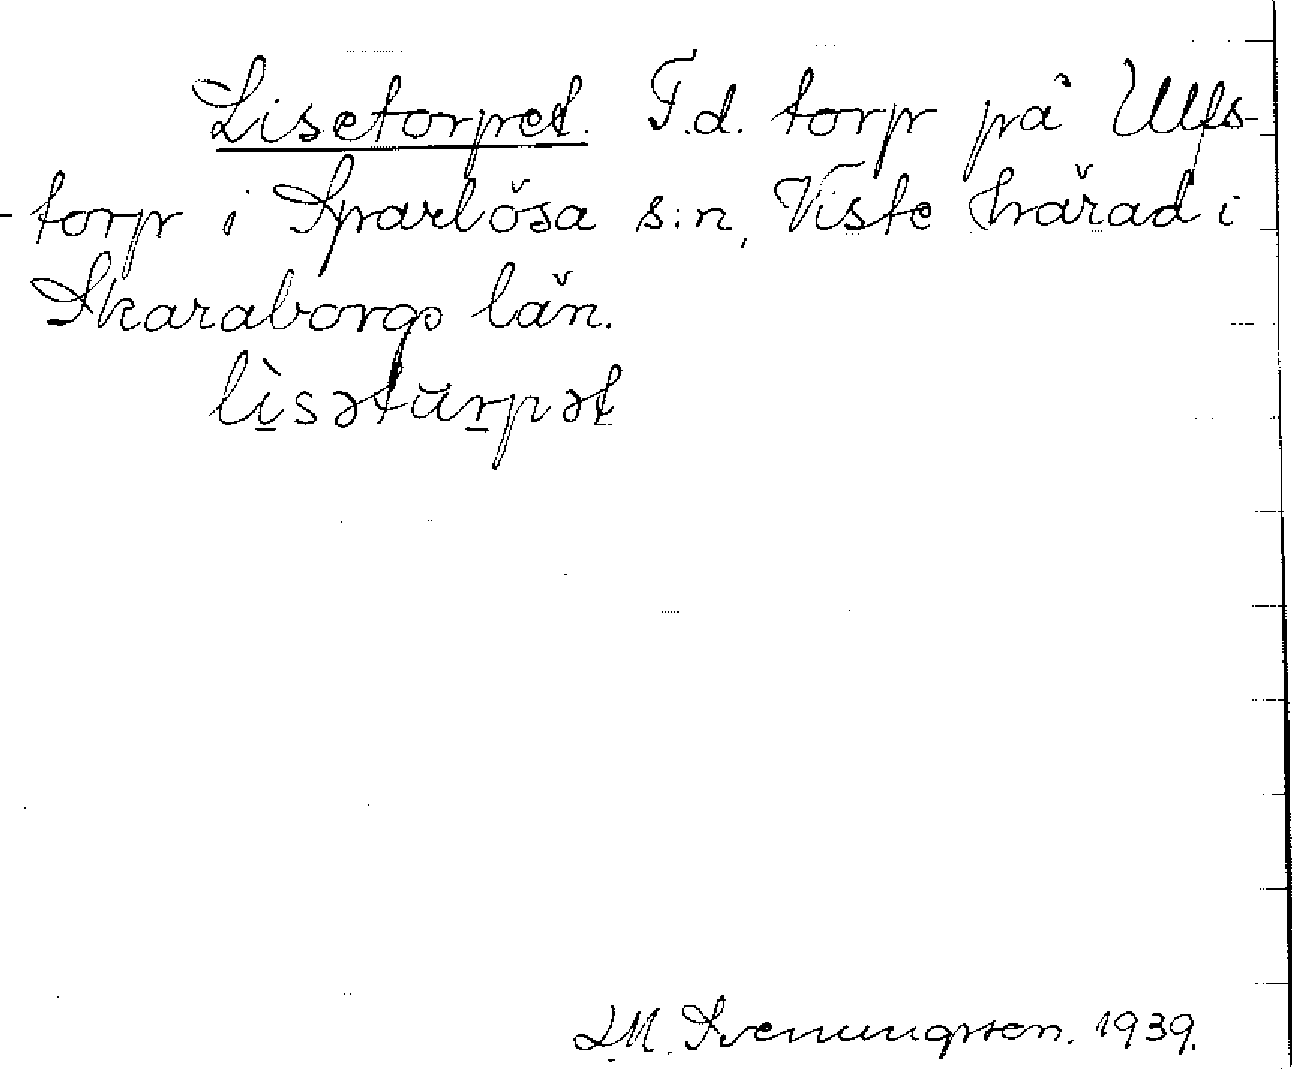 Lisetorpet. F.d. torp på Ulfs-
-torp i Sparlösa s:n, Viste härad i
Skaraborgs län.
lìsətùrpət
L.M. Svenungsson. 1939.